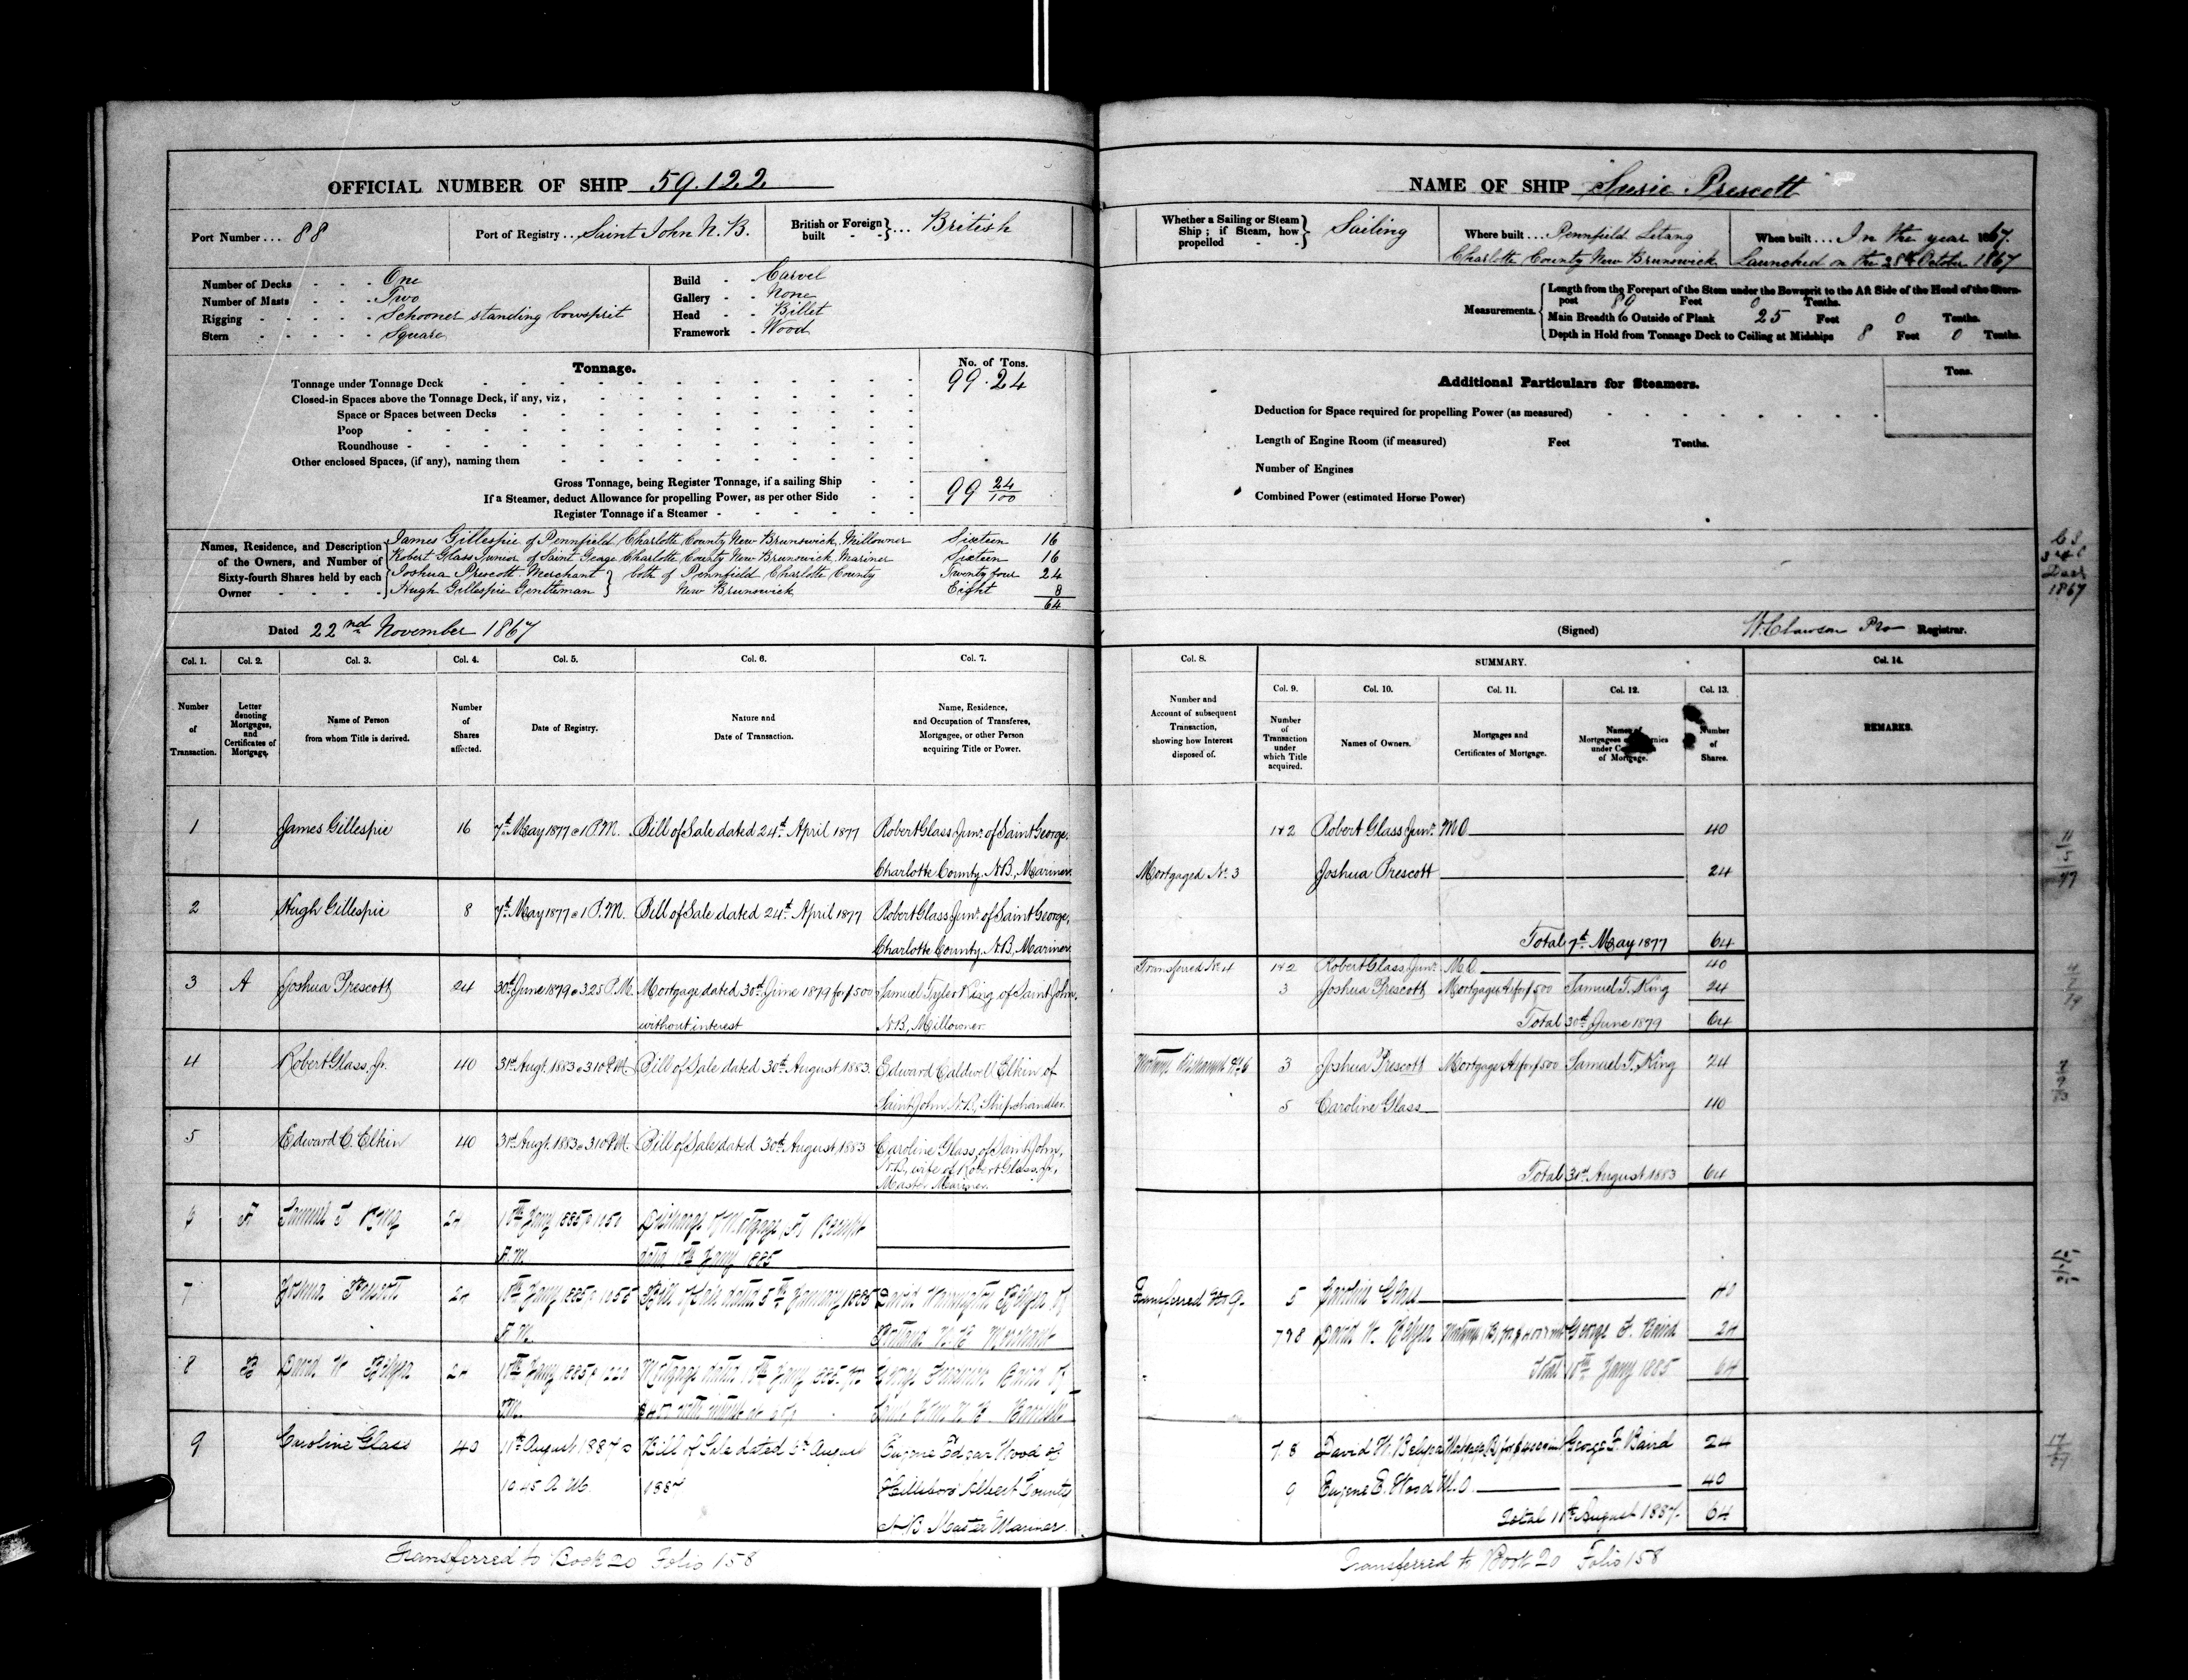 OFFICIAL NUMBER OF SHIP 59.122
Port Number ... 88
Port of Registry ... Saint John N. B.
British or Foreign built - - } ... British
Number of Decks - - - One
Number of Masts - - - Two
Rigging - - - - - Schooner standing bowsprit
Stern - - - - - Square
Build - - Carvel
Gallery - - None
Head - - Billet
Framework - Wood
Tonnage.
No. of Tons.
Tonnage under Tonnage Deck 99.24
Closed-in Spaces above the Tonnage Deck, if any, viz,
Space or Spaces between Decks
Poop
Roundhouse
Other enclosed Spaces, (if any), naming them
Gross Tonnage, being Register Tonnage, if a sailing Ship
If a Steamer, deduct Allowance for propelling Power, as per other Side 99 24/100
Register Tonnage if a Steamer
Names, Residence, and Description of the Owners, and Number of Sixty-fourth Shares held by each Owner
James Gillespie of Pennfield Charlotte County New Brunswick Millowner Sixteen 16
Robert Glass Junior of Saint Geoge Charlotte County New Brunswick Mariner Sixteen 16
Joshua Prescott Merchant } both of Pennfield Charlotte County Twenty four 24
Hugh Gillespie Gentleman } New Brunswick Eight 8
64
Dated 22nd November 1867
Col. 1. Col. 2. Col. 3. Col. 4. Col. 5. Col. 6. Col. 7.
Number of Transaction.
Letter denoting Mortgages, and Certificates of Mortgage.
Name of Person from whom Title is derived.
Number of Shares affected.
Date of Registry.
Nature and Date of Transaction.
Name, Residence, and Occupation of Transferee, Mortgagee, or other Person acquiring Title or Power.
1 James Gillespie 16 7th May 1877 @ 1 P.M. Bill of Sale dated 24th April 1877 Robert Glass Junr. of Saint George,
Charlotte County. N.B., Mariner.
2 Hugh Gillespie 8 7th May 1877 @ 1 P.M. Bill of Sale dated 24th April 1877 Robert Glass Junr. of Saint George,
Charlotte County. N.B., Mariner.
3 A Joshua Prescott 24 30th June 1879 @ 3.25 P.M. Mortgage dated 30th June 1879 for $500 Samuel Tyler King of Saint John,
without interest N.B., Millowner.
4 Robert Glass, Jr. 40 31st Augt. 1883 @ 3.10 P.M. Bill of Sale dated 30th August 1883. Edward Caldwell Elkin of
Saint John, N.B., Shipchandler.
5 Edward C. Elkin 40 31st Augt. 1883 @ 3.10 P.M. Bill of Sale dated 30th August 1883 Caroline Glass, of Saint John,
N.B., wife of Robert Glass, Jr.,
Master Mariner.
6 A Samuel T King 24 10th Jany 1885 @ 10 50 Discharge of Mortgage A Receipt
A.M. dated 10th Jany 1885
7 Joshua Prescott 24 10th Jany 1885 @ 10 55 Bill of Sale dated 5th January 1885 David Warrington Belyea of
A.M. Portland N.B Merchant
8 B David W Belyea 24 10th Jany 1885 Mortgage dated 10th Jany 1885 for George Baird of
P.M. Saint John N B Barrister
9 Caroline Glass 40 11th August 1887 @ Bill of Sale dated 5th August Eugene Edgar Wood of
10.45 A.M. 1887 Hillsboro Albert County
N B Master Mariner.
Transferred to Book 20 Folio 158
NAME OF SHIP Susie Prescott
Whether a Sailing or Steam Ship; if Steam, how propelled - - } Sailing
Where built ... Pennfield Letang
Charlotte County New Brunswick
When built ... In the year 1867.
Launched on the 28th October 1867
Measurements.
Length from the Forepart of the Stem under the Bowsprit to the Aft Side of the Head of the Stern-
post 80 Feet 0 Tenths.
Main Breadth to Outside of Plank 25 Feet 0 Tenths.
Depth in Hold from Tonnage Deck to Ceiling at Midships 8 Feet 0 Tenths.
Additional Particulars for Steamers.
Tons.
Deduction for Space required for propelling Power (as measured)
Length of Engine Room (if measured) Feet Tenths.
Number of Engines
Combined Power (estimated Horse Power)
(Signed) W. Clawson Pro Registrar.
Col. 8. SUMMARY. Col. 14.
Col. 9. Col. 10. Col. 11. Col. 12. Col. 13.
Number and Account of subsequent Transaction, showing how Interest disposed of.
Number of Transaction under which Title acquired.
Names of Owners.
Mortgages and Certificates of Mortgage.
Names of Mortgagees under of Mortgage.
Number of Shares.
REMARKS.
1 & 2 Robert Glass Junr. M.O. 40
Mortgaged No. 3 Joshua Prescott 24
Total 7th May 1877 64
Transferred No. 4 1 & 2 Robert Glass, Junr. M.O. 40
3 Joshua Prescott Mortgage A for $500 Samuel T. King 24
Total 30th June 1879 64
3 Joshua Prescott Mortgage A for $500 Samuel T. King 24
5 Caroline Glass 40
Total 31st August 1883 64
Transferred No 9. 5 Caroline Glass 40
7 & 8 David W. Belyea George F. Baird 24
Total 10th Jany 1885 64
7. 8 David W. Belyea Mortgage (B) for $400 George F. Baird 24
9 Eugene E. Wood M.O. 40
Total 11th August 1887. 64
Transferred to Book 20 Folio 158